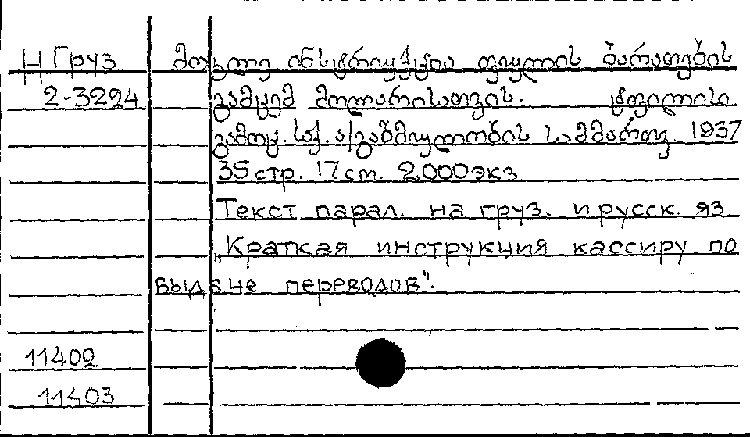 Н Груз მოკლე ინსტრუქცია ფულის ბარათების
2-3224 გამცემ მოლარისათვის. ტფილისი
გამოც. საქ. ა/კავშ სამმართ. 1937
35 стр. 17 cm. 2.000 экз
Текст парал. на груз. и русск. яз
„Краткая инструкция кассиру по
выдаче переводов“.
11402
11403